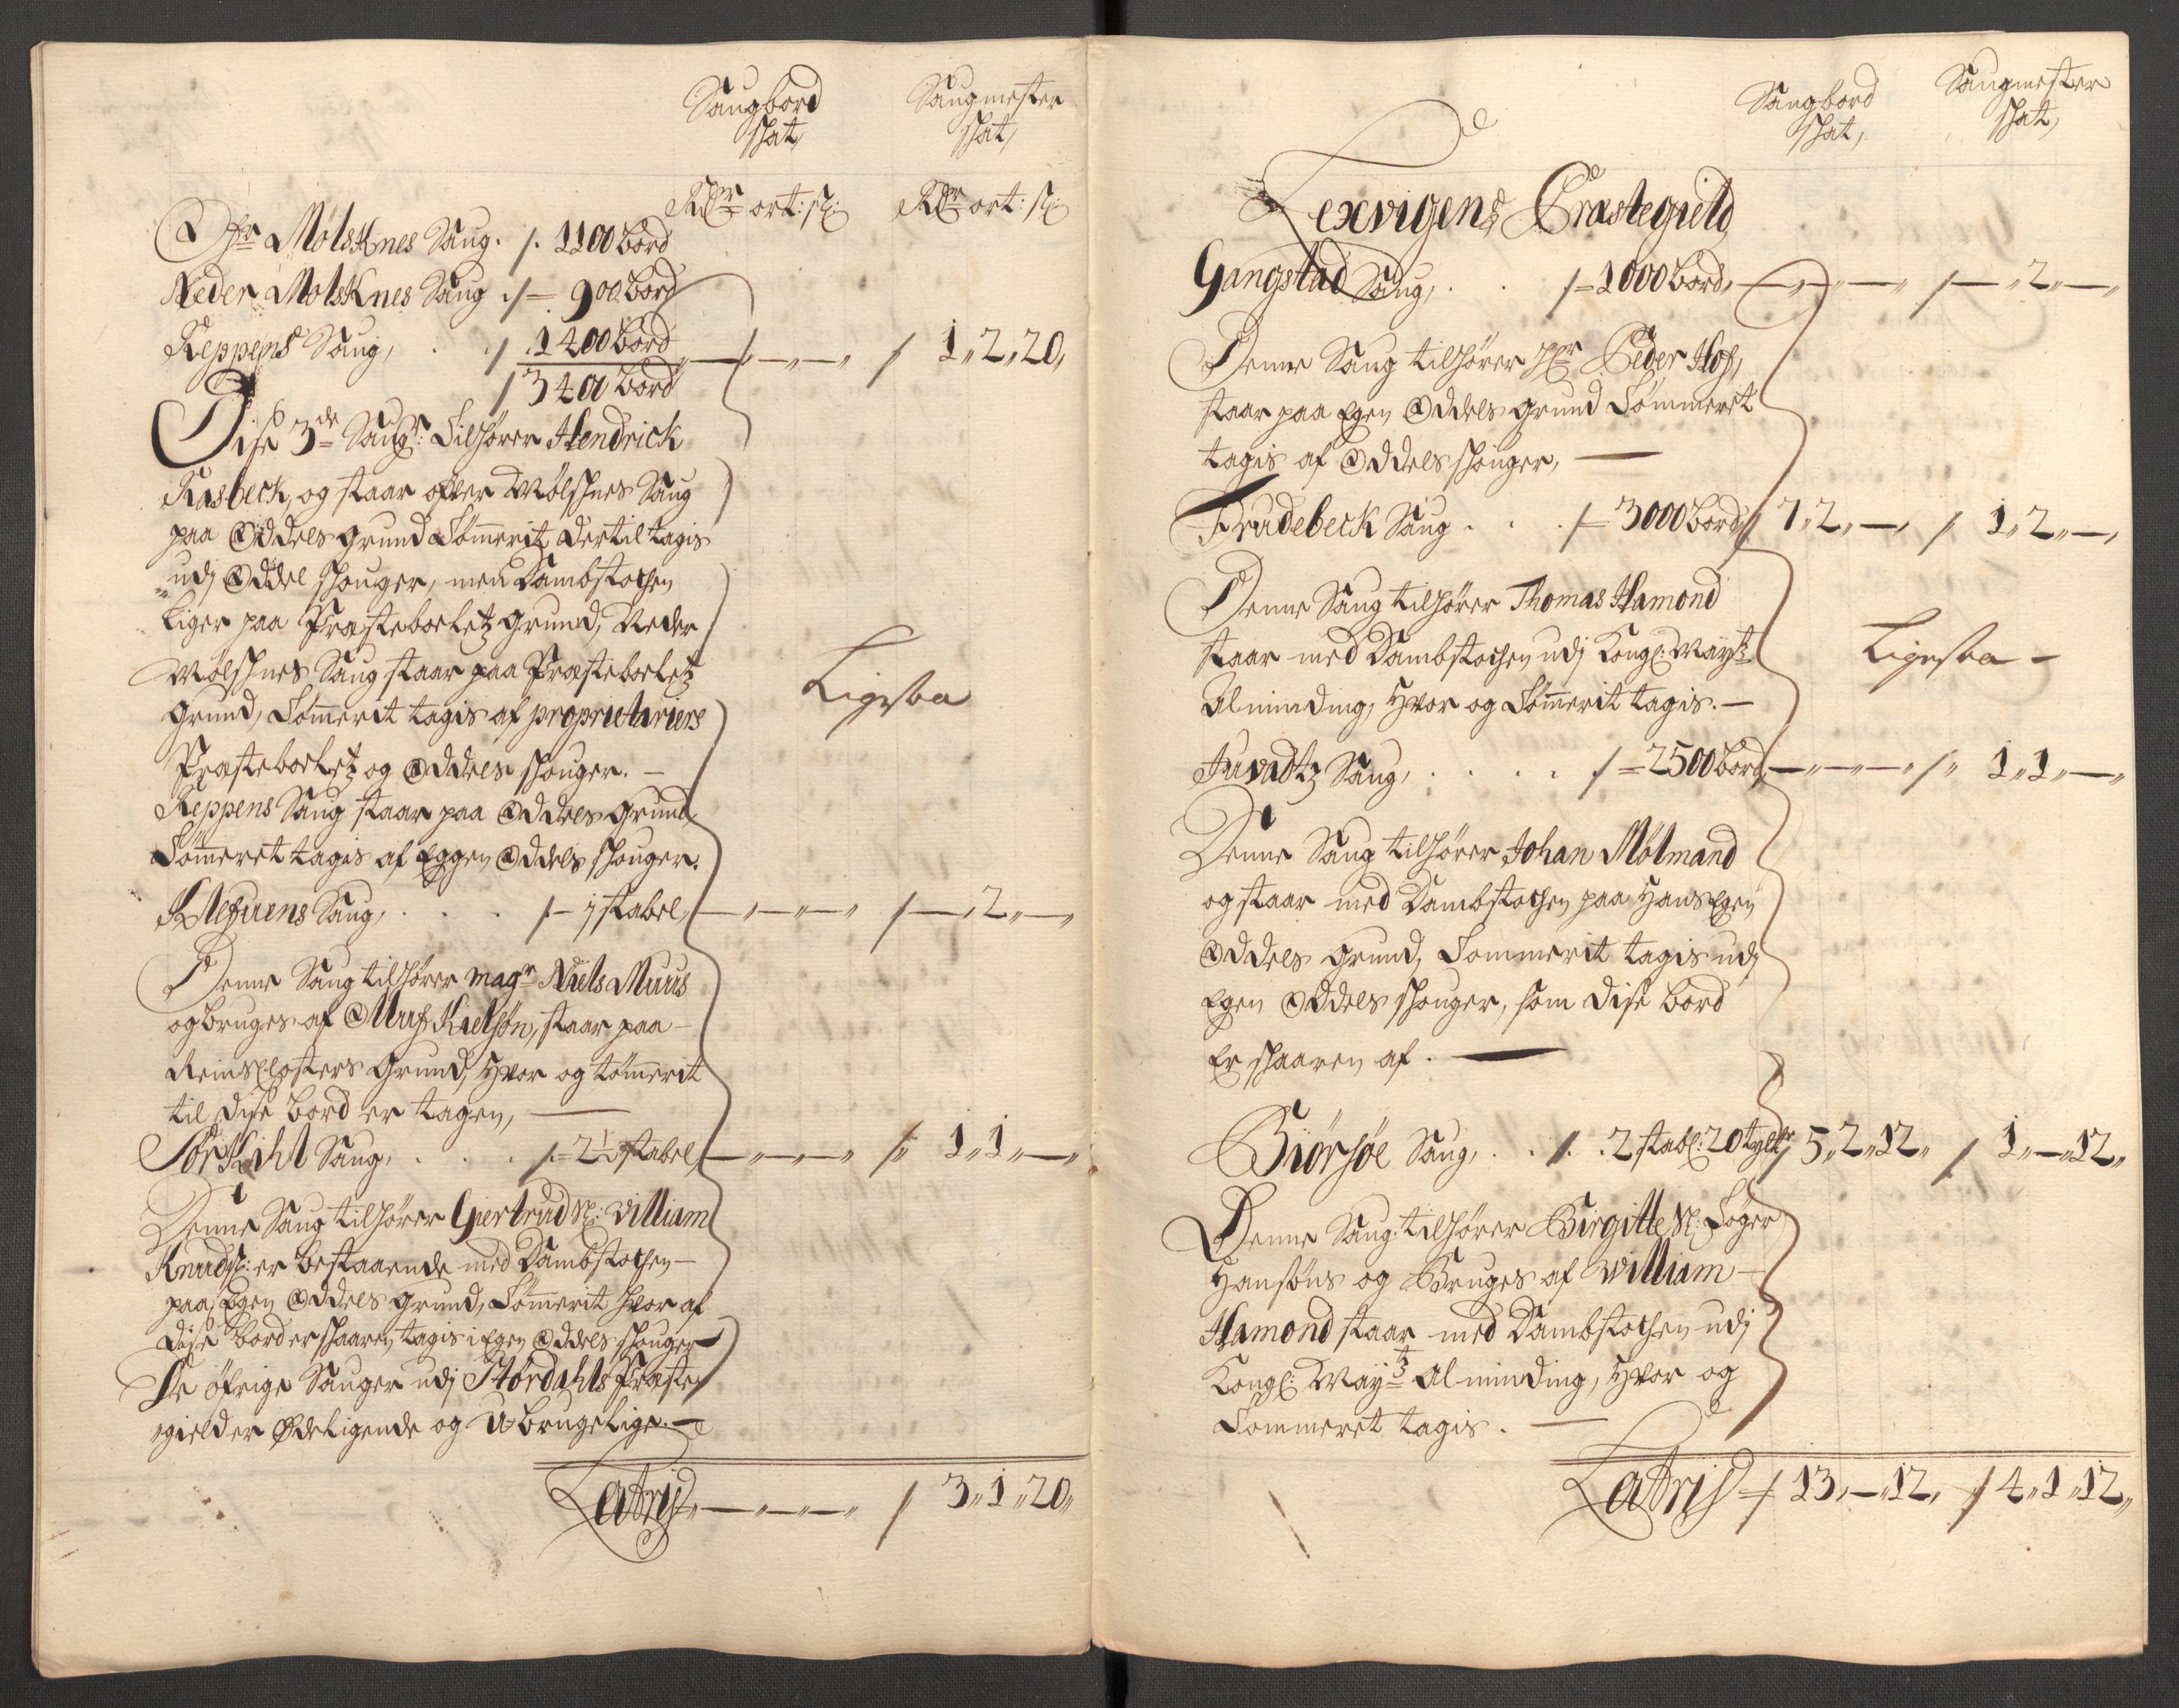 Saugbord Saugmester
skat, skat,
Rdr ort: s: Rdr ort: s:
Ofr Mølsknes Saug. /. 1100 Bord
Neder Molsknes Saug ./= 900 Bord
Reppens Saug, . ./ 1400 Bord — „ — „ — „ / 1„ 2„ 20„
/ 3400 Bord
Dise 3de Saugr: Tilhører Hendrick
Kasbeck, og staar ofver Mølsknes Saug
paa Oddels grund Tømerit dertil tagis
udj Oddel skouger, men Dambstochen
liger paa Præsteboeletz grund, Neder
Mølsknes Saug staar paa Præsteboeletz
grund, Tømerit tagis af proprietariers
Præsteboeletz og Oddels skouger. —
Ligesaa
Reppens Saug staar paa Oddels grund,
Tømeret tagis af Eggen Oddels skouger.
Klefurens Saug, . . . /— 1 stabel, — „ — „ — „ / — „ 2 „ — „
Denne Saug tilhører magr Niels Muus
og bruges af Oluf Kielsøn, staar paa —
Reinsclosters Grund, hvor og tømerit
til dise bord er tagen, —
Sørkihl Saug, . . . /= 2½ stabel, — „ — „ — „ / 1„ 1„ — „
Denne Saug tilhører Giertrud Sl: Villiam
Knudsl: er bestaaende med Dambstochen —
paa Egen Oddels grund, Tømerit hvor af
dise bord er skaaren tagis i Egen Oddels skouger
De øfrige Sauger udj Størdahls Præste
gield er Ødeligende og U-brugelige. —
Latris „ — „ — „ — „ / 3„ 1„ 20„
Saugbord Saugmester
skat, skat,
Lexvigens Præstegield
Gangstad Saug, . . /= 1000 Bord, — „ — „ — „ / — „ 2„ — „
Denne Saug tilhører Hr Peder Hof,
staar paa Egen Oddels grund Tømmerit
tagis af Oddels skouger, —
Frudebeck Saug . . . /= 3000 Bord / 7„ 2„ — „ / 1„ 2„ — „
Denne Saug tilhører Thomas Hamond
staar med Dambstochen udj Kongl: Maytz
Alminding, hvor og Tømerit tagis. —
Ligesaa —
Juvadtz Saug, . . . . /= 2500 Bord, — „ — „ — „ / „ 1„ 1„ — „
Denne Saug tilhører Johan Mølmand
og staar med Dambstochen paa hans Egen
Oddels grund, Tommerit tagis udj
Egen Oddels skouger, som dise bord
Er skaaren af. —
Biørsøe Saug, . . /. . 2 stabl: 20 tylt / 5„ 2„ 12„ / 1„ — „ 12„
Denne Saug tilhører Birgitte Sl: Søger
Hansøns og Bruges af William —
Hamond staar med Dambstochen udj
Kongl: Maytz Alminding, hvor og
Tommeret tagis. —
Latris / 13„ — „ 12„ / 4„ 1„ 12„